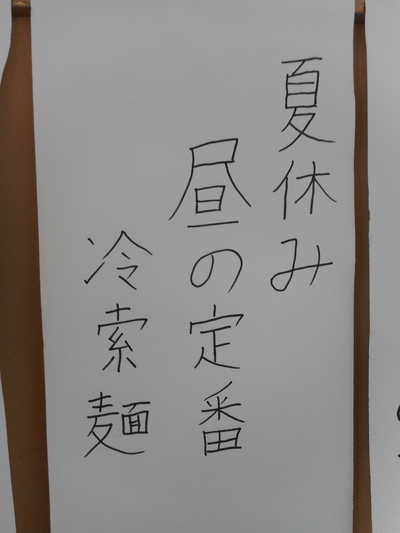 夏休み
昼の定番
冷索麺